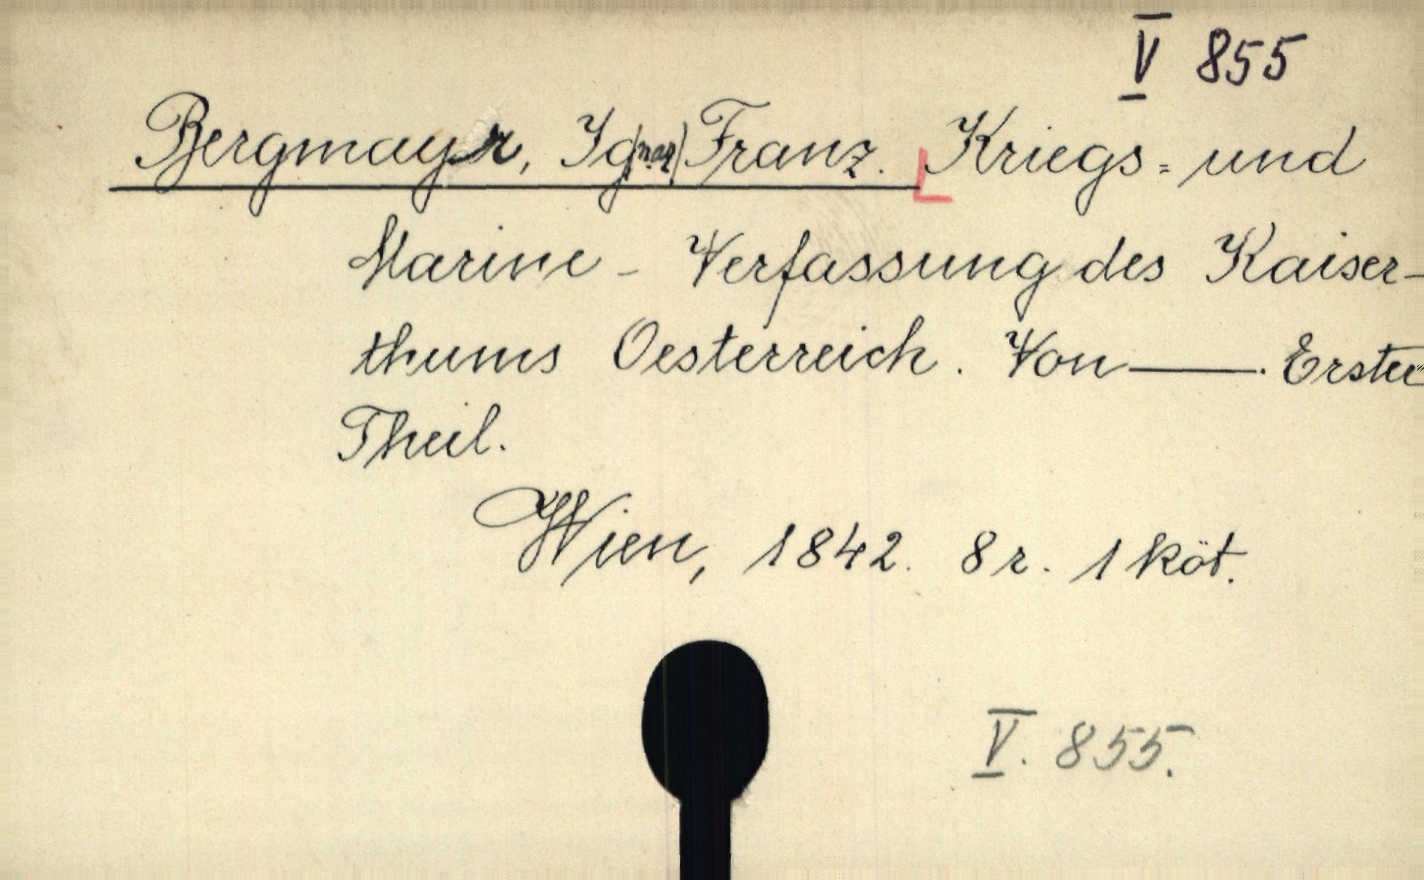 V 855
Bergmayr, Ig(naz) Franz. Kriegs= und
Marine - Verfassung des Kaiser-
thums Oesterreich. Von ——. Erster
Theil.
Wien, 1842. 8r. 1 köt.
V. 855.